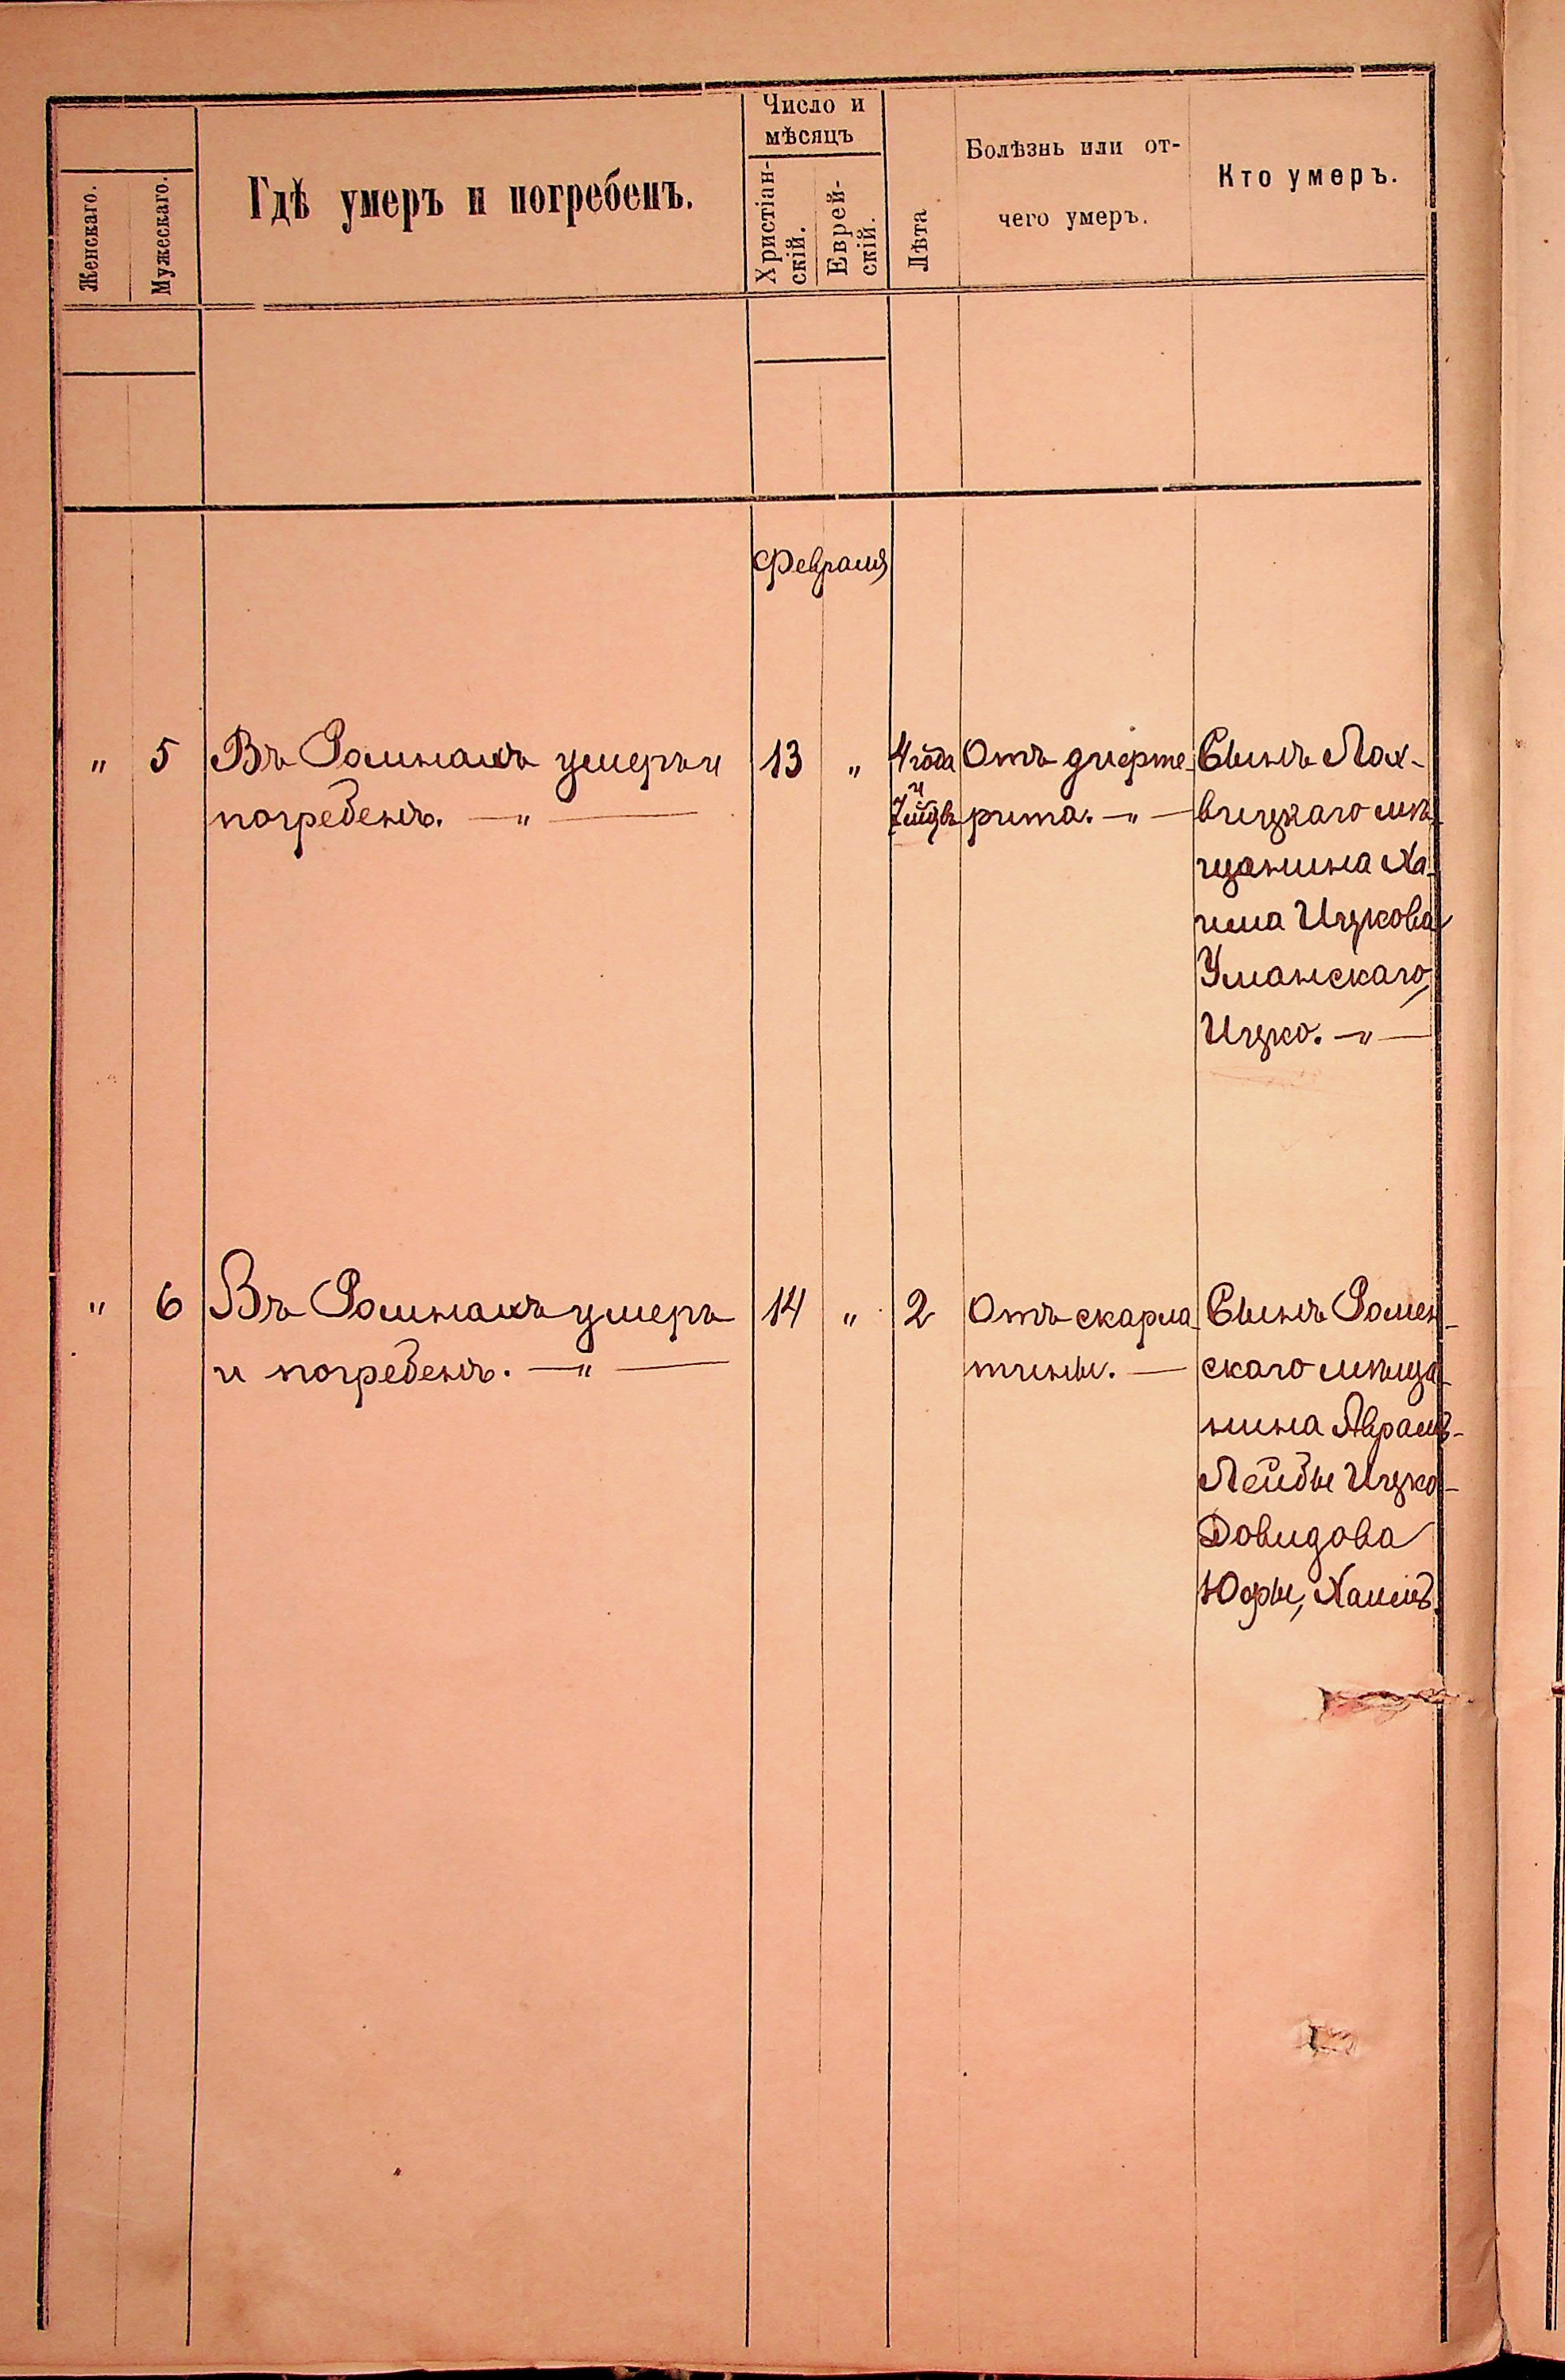 Женскаго.
Мужескаго.
Гдѣ умеръ и погребенъ.
Число и
мѣсяцъ
Христіан-
скій.
Еврей-
скій.
Лѣта
Болѣзнь или от-
чего умеръ.
Кто умеръ.
Февраля
" 5
Въ Ромнахъ умеръ и
погребенъ. — " —
13 "
4 года
и
7 мѣсц.
Отъ дифте-
рита. — " —
Сынъ Лох-
вицкаго мѣ-
щанина Ха-
има Ицкова
Уманскаго,
Ицко. — " —
" 6
Въ Ромнахъ умеръ
и погребенъ. — " —
14 "
2
Отъ скарла-
тины. —
Сынъ Ромен-
скаго мѣща-
нина Аврамъ-
Лейбы Ицко-
Довидова
Юфы, Хаимъ.